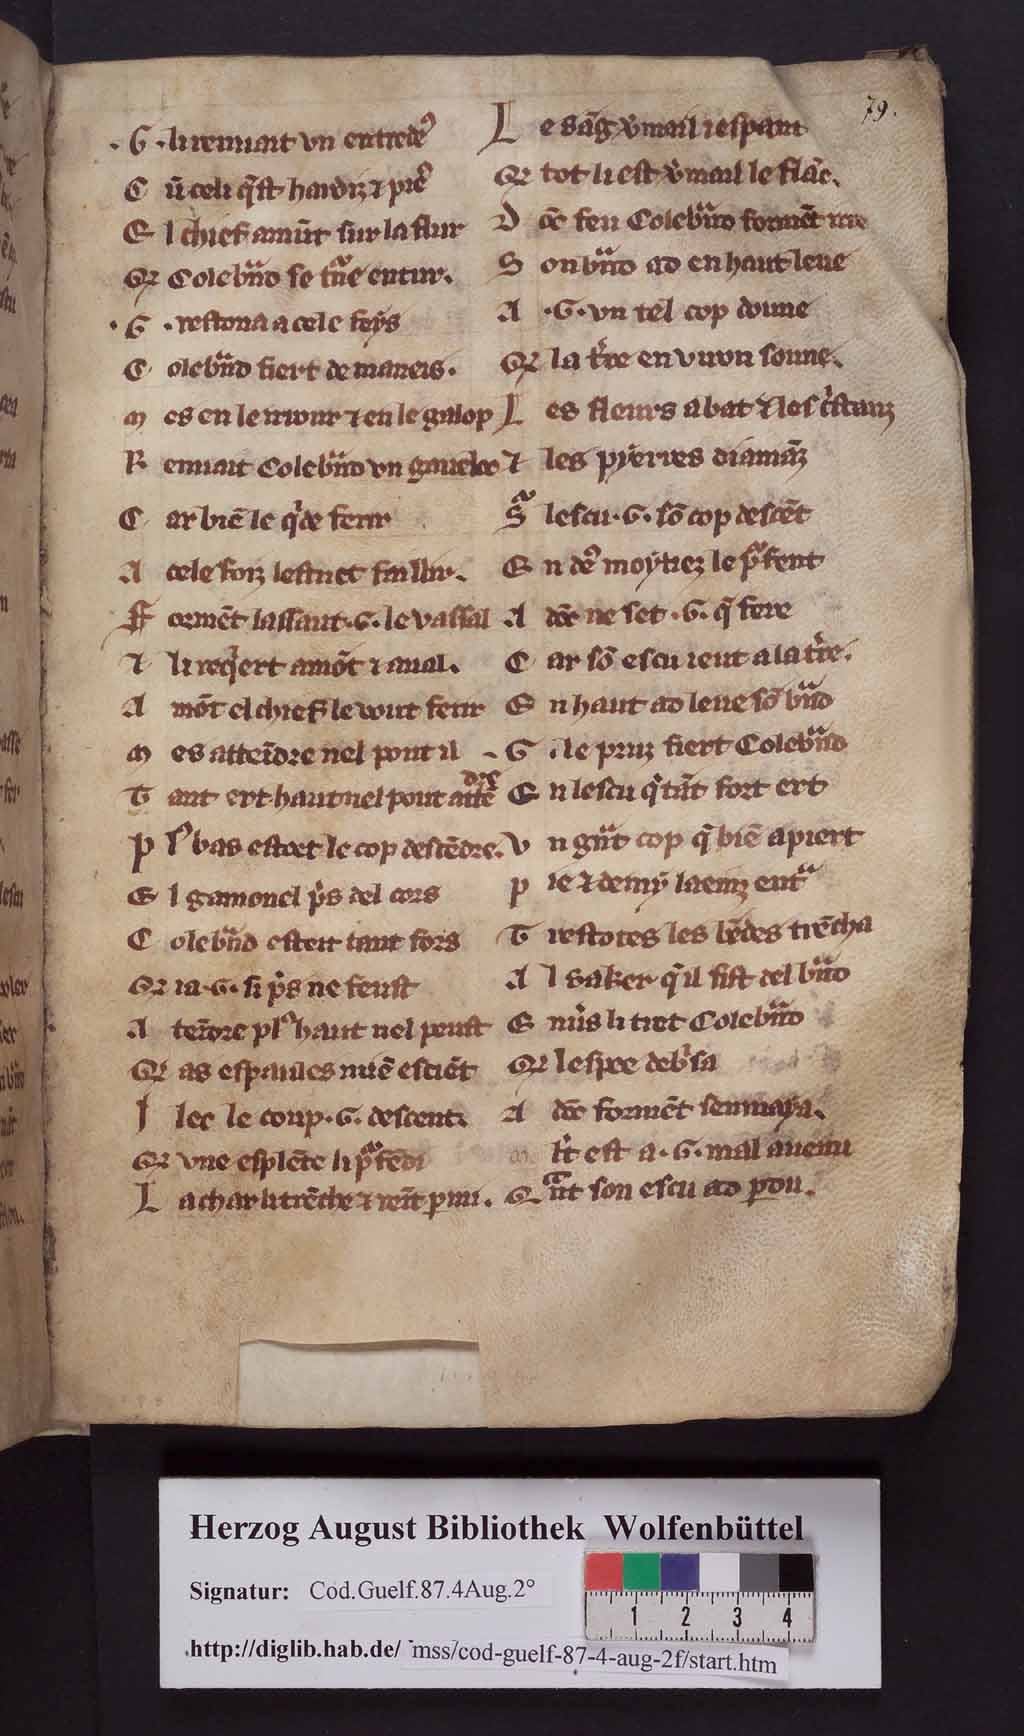 79.
.G. li renuait vn entredeˀ
C ū celi q̄ st hardiz ⁊ pˀ
E l chief amūt sur la flur
Qͥ Colebͣnd se tͣue entur.
.G. restona a cele feys
C olebͣnd fiert de maneis.
M es en le irour ⁊ en le galop
R enuait Colebͣnd vn
C ar biē le qͥde ferir
A cele foiz lestuet faillir.
F ormēt lassaut .G. le vassal
⁊ li reqͥert amōt ⁊ aual.
A mōt el chief le vout ferir
M es atteīdre nel pout il
T ant ert haut nel pout attēdre
P lˀ bas estoet le cop descēdre.
E l gamonel pͥs del cors
C olebͣnd esteit tant fors
Qͥ ia .G. si pͥs ne feust
A teīdre plˀ haut nel peust
Qͥ as espaules nuē estiēt
I lec le coup .G. descent.
Qͥ vne esplēte li pͣfēdi
L a char li trēche ⁊ reīt pmi.
L e sāg v̾mail i espant
Qͥ tot li est v̾mail le flāc.
D ōc feu Colebͣnd formēt irie
S on bͣnd ad en haut leue
A .G. vn tel cop doune
Qͥ la tͥre en viron sonne.
L es fleurs abat ⁊ les cͥstaus
⁊ les pyerres diamāz
Sͣ lescu .G. sō cop descēt
E n deˀ moytiez le pͣfent
A dōc ne set .G. q̄ fere
C ar sō escu ieut a la tͥre.
E n haut ad leue sō bͣnd
.G. le pruz fiert Colebͣnd
E n lescu qͥ tāt fort ert
V n gͣnt cop q̄ biē apiert
P ie ⁊ demy laenz entͣ
T restotes les bēdes trēcha
A l saker qͥl fist del bͣnd
E nuͥs li tret Colebͣnd
Qͥ lespee debͥsa
A dōc formēt senmaya.
Qͣnt son escu ad pdu.
Herzog August Bibliothek Wolfenbüttel
Signatur: Cod.Guelf.87.4Aug.2°
http://diglib.hab.de/ mss/cod-guelf-87-4-aug-2f/start.htm
1 2 3 4